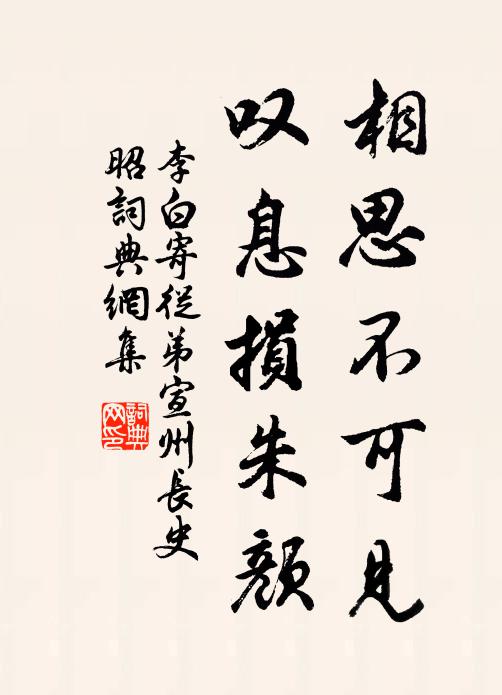 相思不可見
叹息損朱顏
李白寄從弟宣州長史
昭詞典網集
詞典
网印